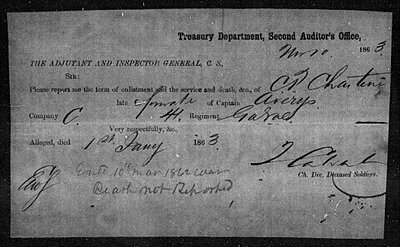 Treasury Department, Second Auditor's Office,
Nov 10 1863
THE ADJUTANT AND INSPECTOR GENERAL, C. S.
SIR:
Please report me the form of enlistment and the service and death, &c., of C
late private of Captain Averys
Company C. 41 Regiment
Very respectfully, &c.,
Alleged, died 1st Jany 1863.
Ch. Div. Deceased Soldiers.
Entd 10th Mar 1862 war
Death not Reported